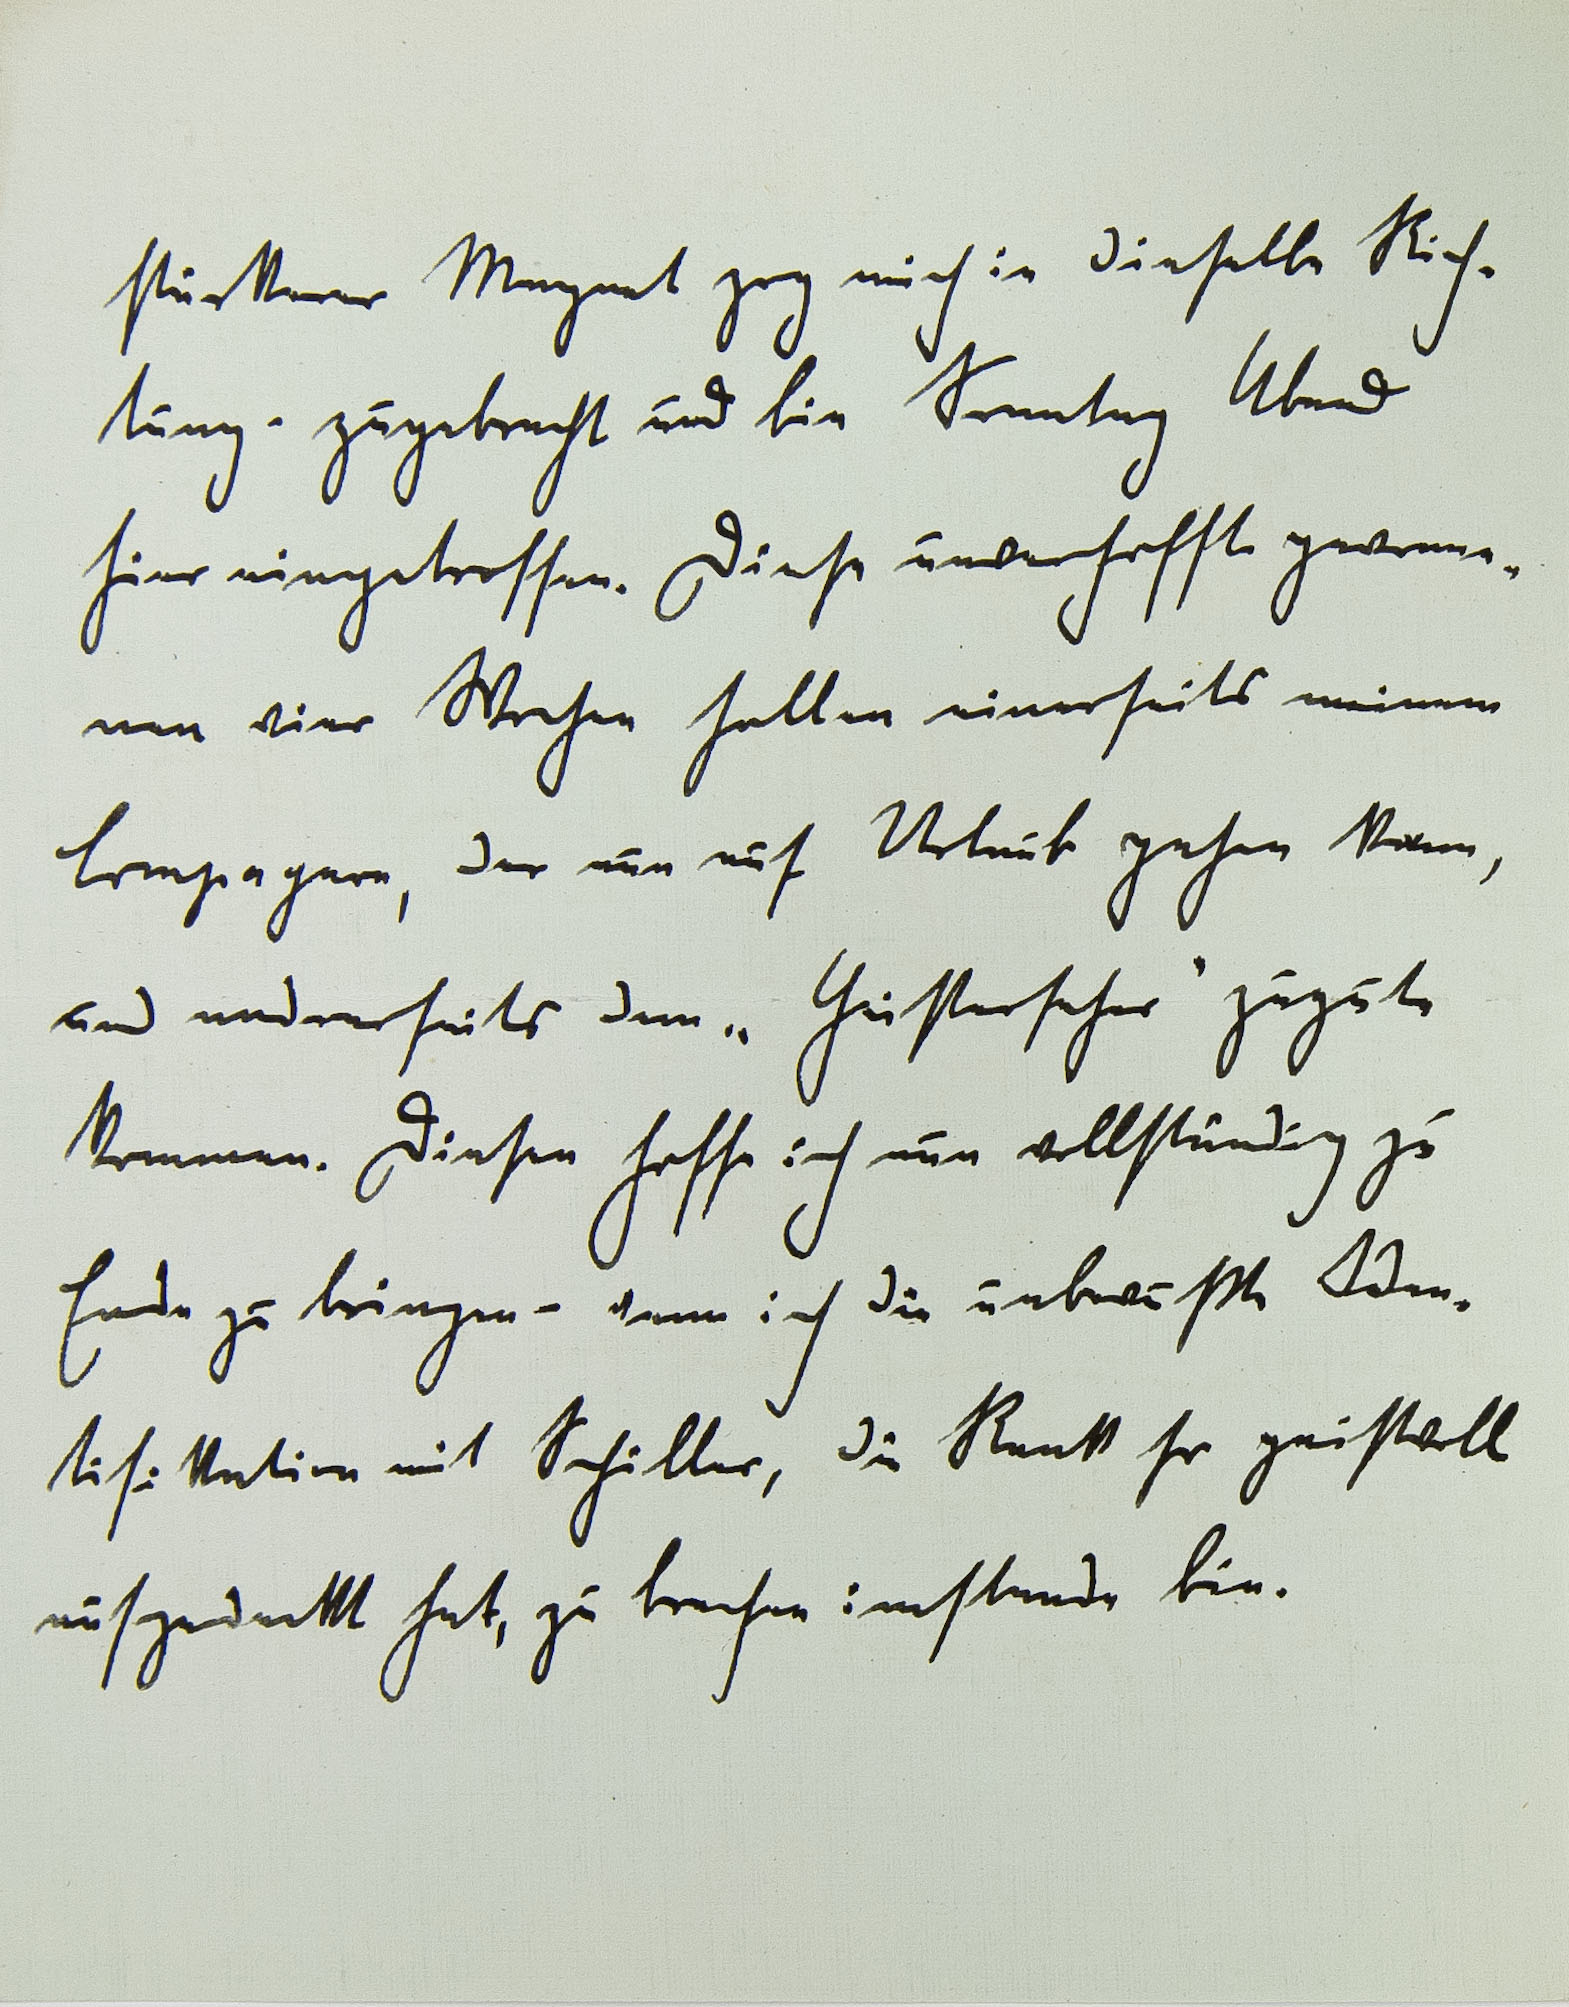 stärkerer Magnet zog mich in dieselbe Rich-
tung - zugebracht und bin Sonntag Abend
hier eingetroffen. Diese unverhofft gewonne-
nen vier Wochen sollen einerseits meinem
Compagnon, der nun auf Urlaub gehen kann,
und andrerseits dem „Geisterseher" zugute
kommen. Diesen hoffe ich nun vollständig zu
Ende zu bringen - wenn ich die unbewußte Iden-
tifikation mit Schiller, die Rank so geistvoll
aufgedeckt hat, zu brechen imstande bin.